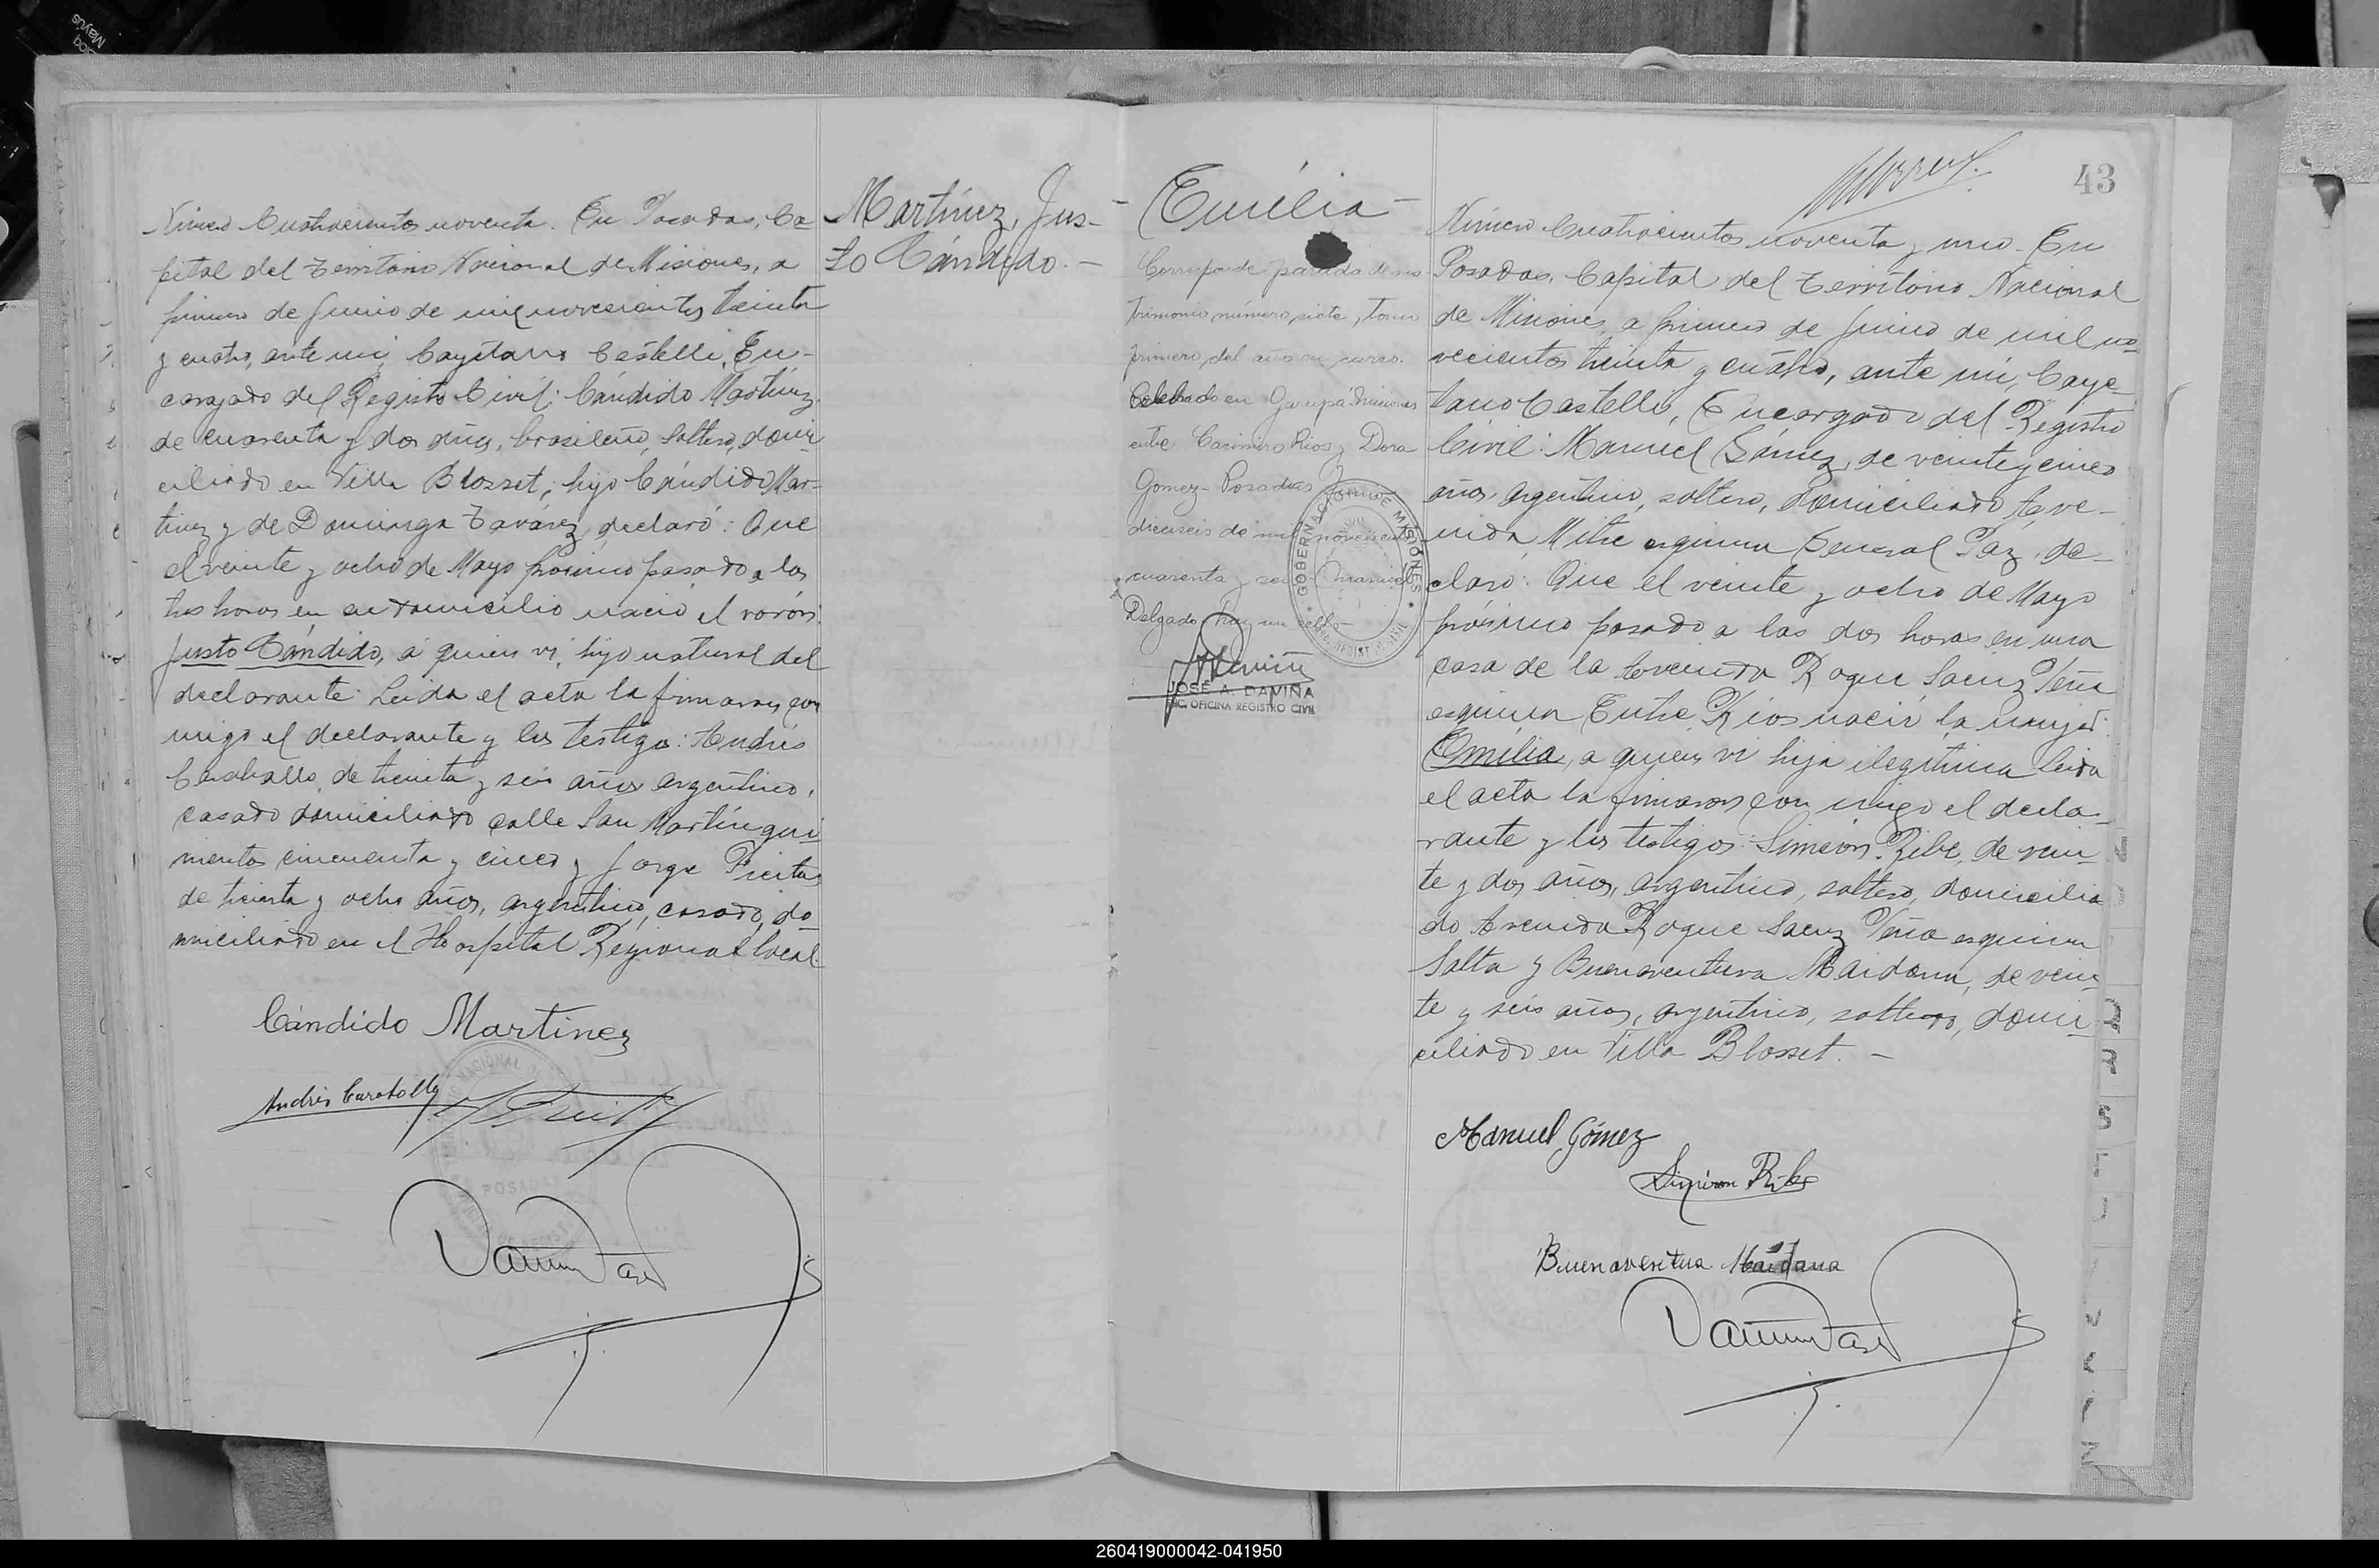 Número Cuatrocientos noventa. En Posadas, Ca-
pital del Territorio Nacional de Misiones, a
primero de Junio de mil novecientos treinta
y cuatro, ante mi, Cayetano Castelli, En-
cargado del Registro Civil: Cándido Martínez
de cuarenta y dos años, brasileño, soltero, domi-
ciliado en Villa Blosset; hijo Cándido Mar-
tinez y de Dominga Tavárez, declaró: Que
el veinte y ocho de Mayo próximo pasado a las
tres horas en su domicilio nació el varón:
Justo Cándido, á quien vi, hijo natural del
declarante. Leida el acta la firmaron con
migo el declarante y los testigos: Andrés
Caraballo, de treinta y seis años argentino,
casado domiciliado calle San Martín qui-
nientos cincuenta y cinco y Jorge Freitas
de treinta y ocho años, argentino, casado, do-
miciliado en el Hospital Regional local.
Cándido Martínez
Andrés Caraballo
POSADAS
Martínez, Jus-
to Cándido.-
- Emilia -
Corresponde partida de ma-
trimonio número siete, tomo
primero, del año en curso.
Celebrado en Garupá Misiones
entre Casimiro Rios y Dora
Gomez - Posadas Junio
dieciseis de mil novecientos
cuarenta y seis - Manuel
Delgado - hay un sello -
GOBERNACION DE MISIONES
JOSÉ A. DAVIÑA
ENC. OFICINA REGISTRO CIVIL
43
Número Cuatrocientos noventa y uno. En
Posadas, Capital del Territorio Nacional
de Misiones, a primero de Junio de mil no-
vecientos treinta y cuatro, ante mi, Caye-
tano Castelli, Encargado del Registro
Civil: Manuel Gómez, de veinte y cinco
años, argentino, soltero, domiciliado Ave-
nida Mitre esquina General Paz, de-
claro: Que el veinte y ocho de Mayo
próximo pasado a las dos horas en una
casa de la Avenida Roque Saenz Peña
esquina Entre Rios nació la mujer:
Emilia, a quien vi hija ilegítima. Leida
el acta la firmaron con migo el decla-
rante y los testigos: Simeón Ribe, de vein-
te y dos años, argentino, soltero, domicilia
do Avenida Roque Saenz Peña esquina
Salta y Buenaventura Maidana, de vein-
te y seis años, argentino, soltero, domi-
ciliado en Villa Blosset. -
Manuel Gómez
Simeon Ribe
Buenaventura Maidana
260419000042-041950